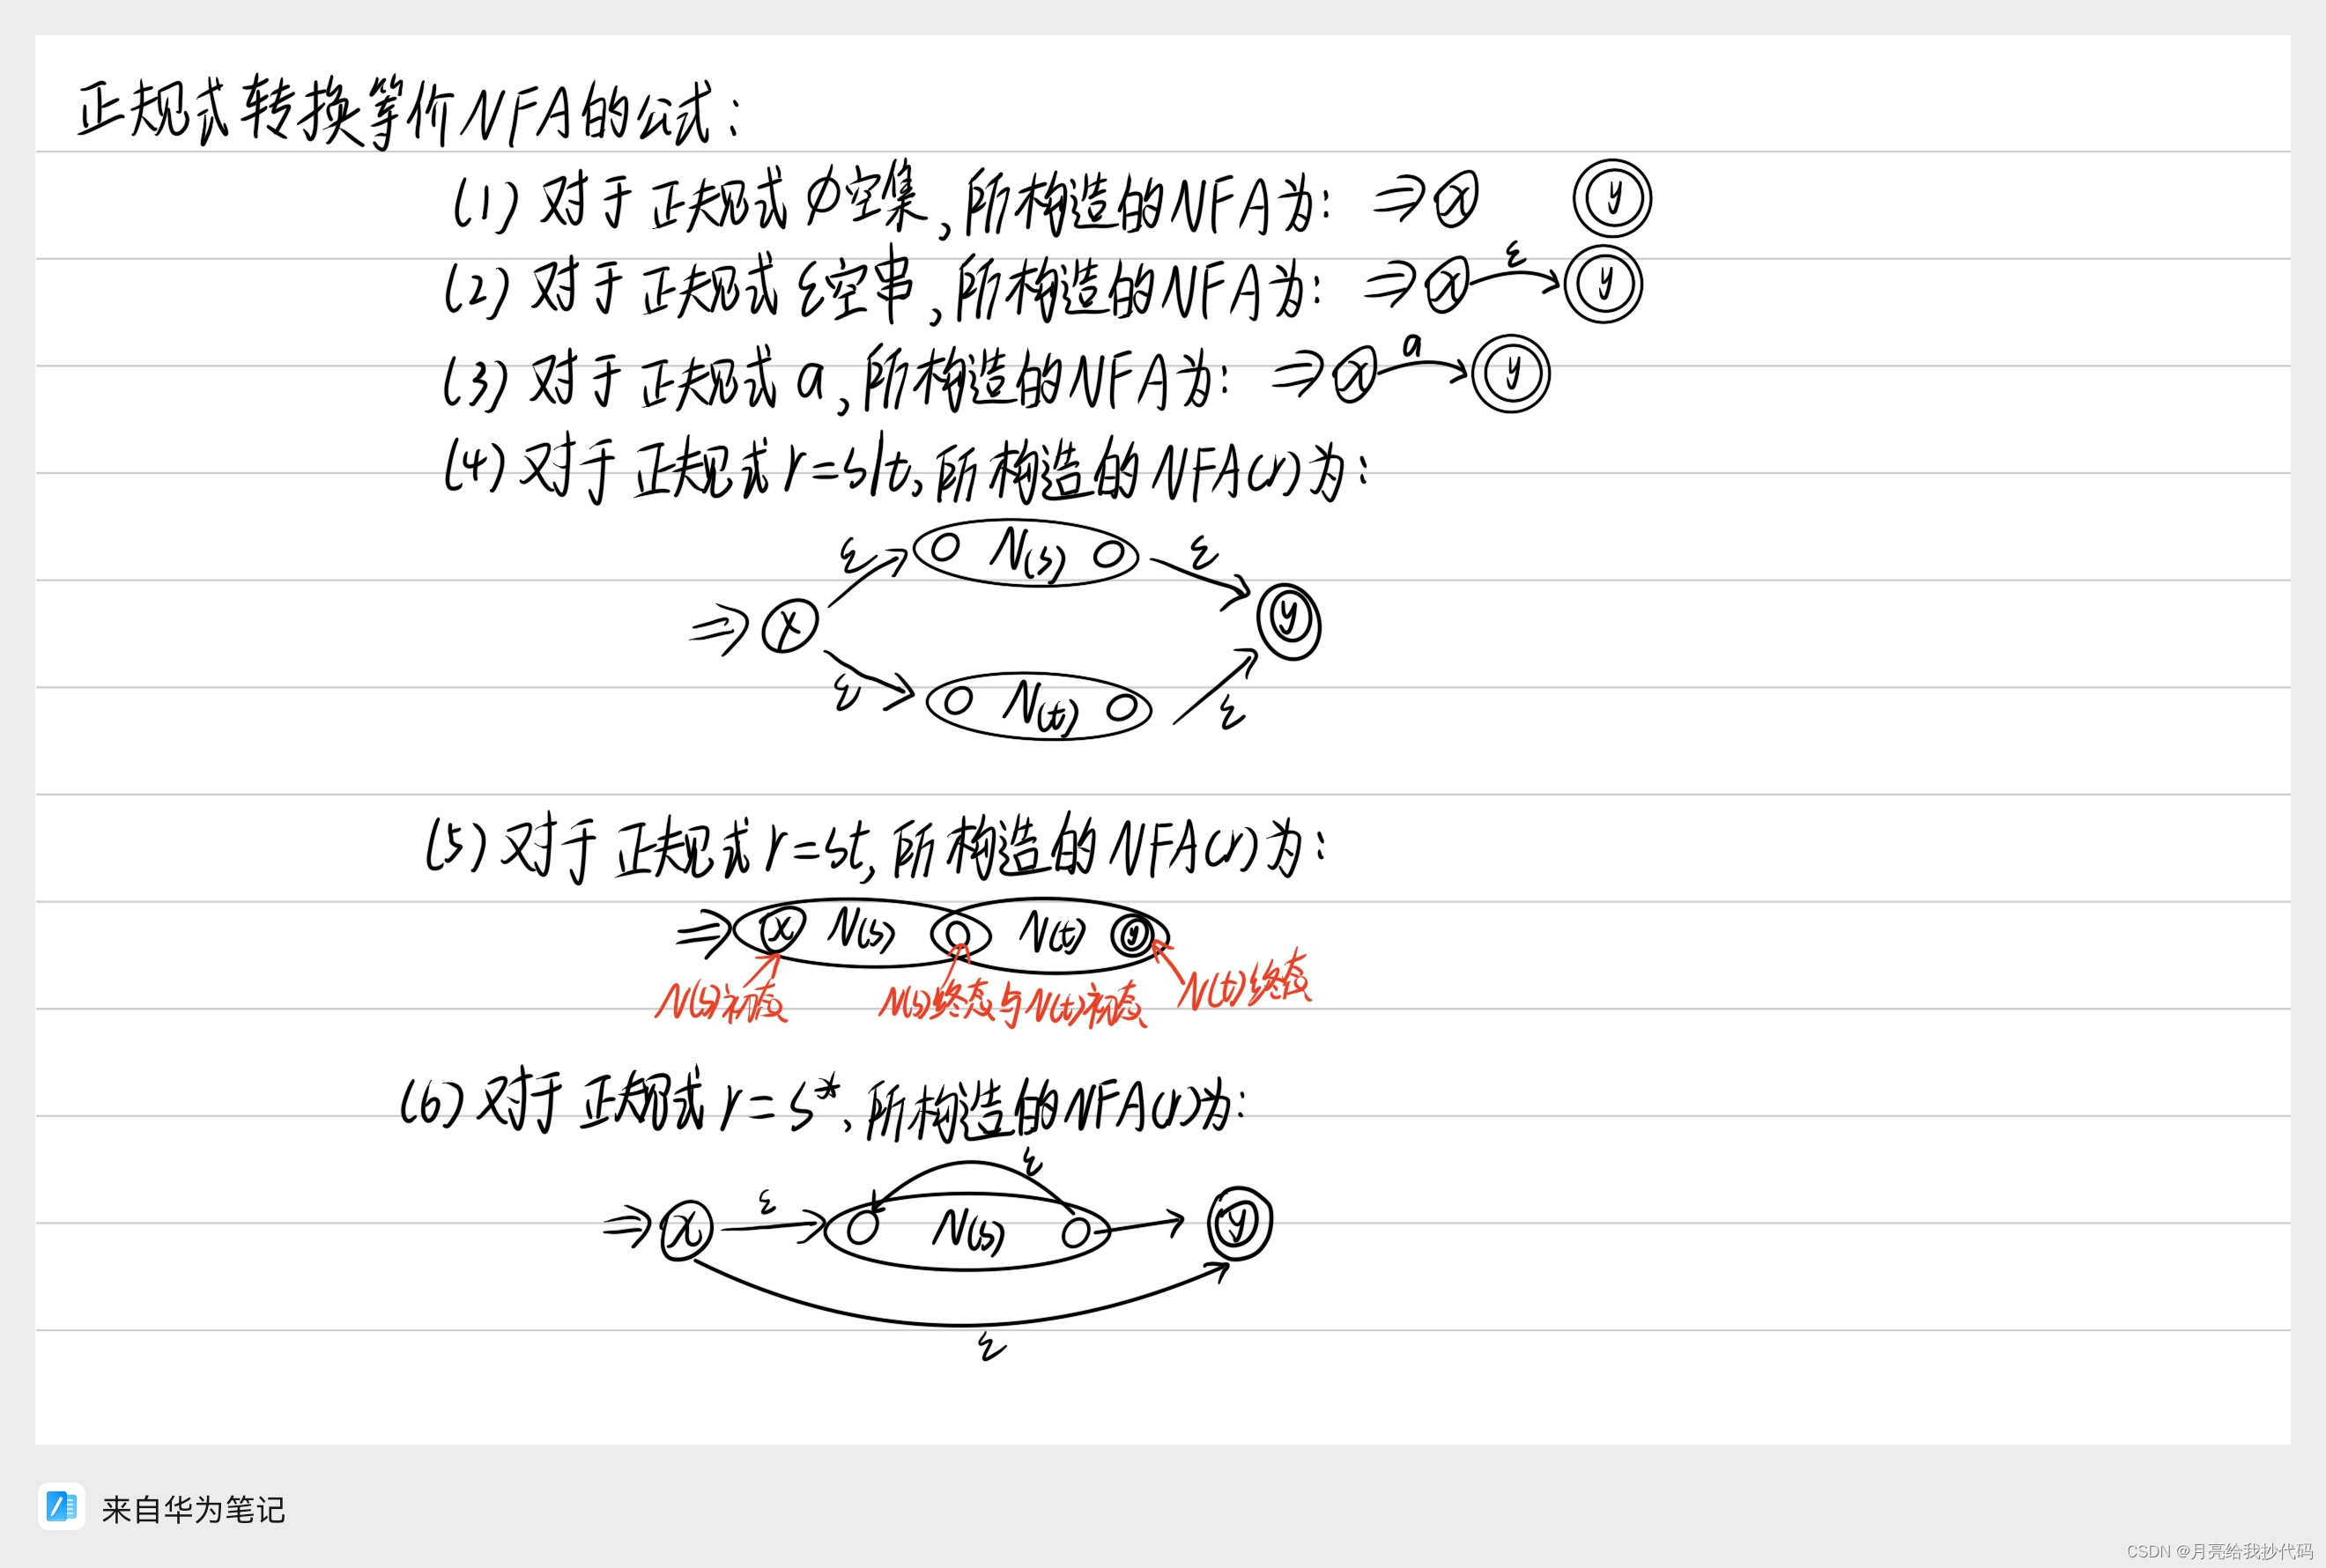 正规式转换等价NFA的公式：
(1) 对于正规式φ空集,所构造的NFA为: ⇒ x y
(2) 对于正规式ε空串,所构造的NFA为: ⇒ x ε y
(3) 对于正规式a,所构造的NFA为: ⇒ x a y
(4) 对于正规式r=s|t,所构造的NFA(r)为:
ε N(s) ε
⇒ x y
ε N(t) ε
(5) 对于正规式r=st,所构造的NFA(r)为:
⇒ x N(s) N(t) y
N(s)初态 N(s)终态与N(t)初态 N(t)终态
(6) 对于正规式r=s*,所构造的NFA(r)为:
ε
⇒ x ε N(s) y
ε
来自华为笔记
CSDN @月亮给我抄代码